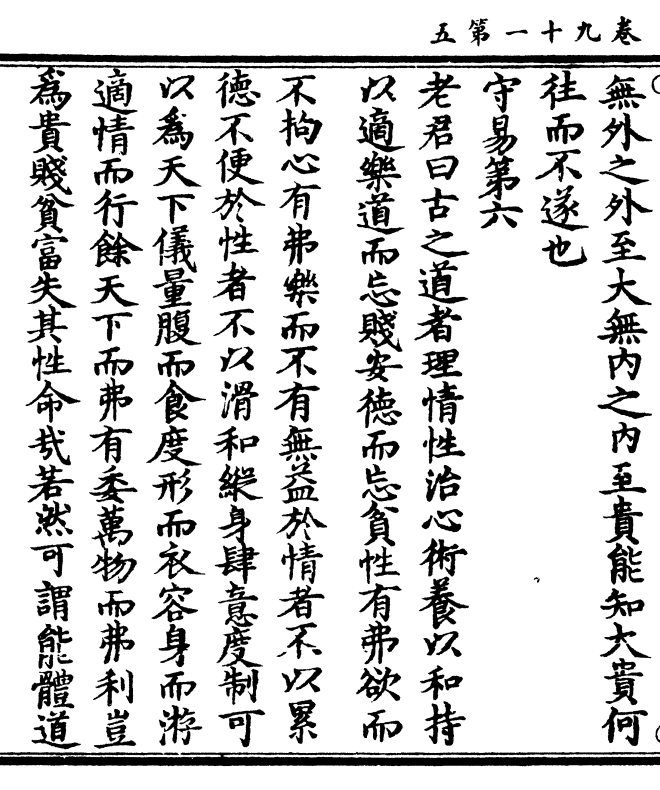 卷九十一第五
無外之外至大無内之内至貴能知大貴何
往而不遂也
守易第六
老君曰古之道者理情性治心術養以和持
以適樂道而忘賤安德而忘貧性有弗欲而
不拘心有弗樂而不有無益於情者不以累
德不便於性者不以滑和縱身肆意度制可
以爲天下儀量腹而食度形而衣容身而游
適情而行餘天下而弗有委萬物而弗利豈
爲貴賤貧富失其性命哉若然可謂能體道